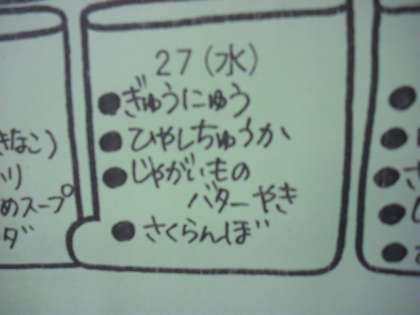 27(水)
●ぎゅうにゅう
●ひやしちゅうか
●じゃがいもの
バターやき
●さくらんぼ
きなこ)
り
めスープ
ダ